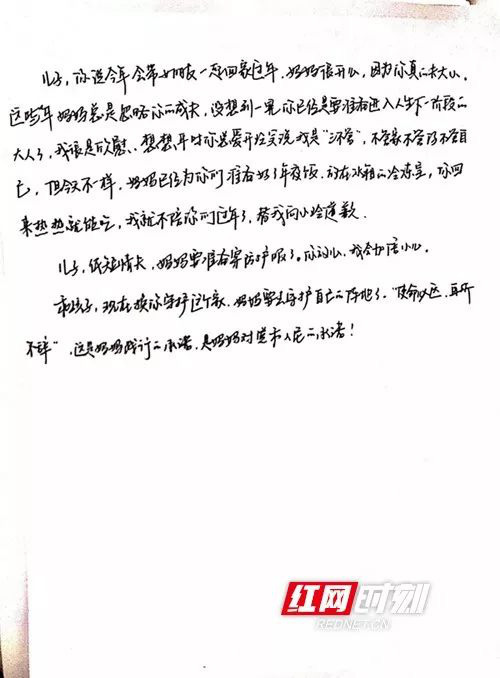 儿子，你说今年会带女朋友一起回家过年，妈妈很开心，因为你真的长大了。
这些年妈妈总是忽略你的成长，没想到一晃你已经是要准备进入人生下一阶段的
大人了，我很是欣慰。想想平时你总爱开玩笑说我是“三不管”，不管家不管你不管自
己，但今天不一样，妈妈已经为你们准备好了年夜饭，放在冰箱的冷冻室，你回
来热热就能吃，我就不陪你们过年了，替我向小冷道歉.
儿子，纸短情长，妈妈要准备穿防护服了。你放心，我会加倍小心.
乖孩子，现在换你守护这个家，妈妈要去守护自己的阵地了。“使命必达，再所
不辞”，这是妈妈践行的承诺，是妈妈对党和人民的承诺！
红网时刻
REDNET.CN